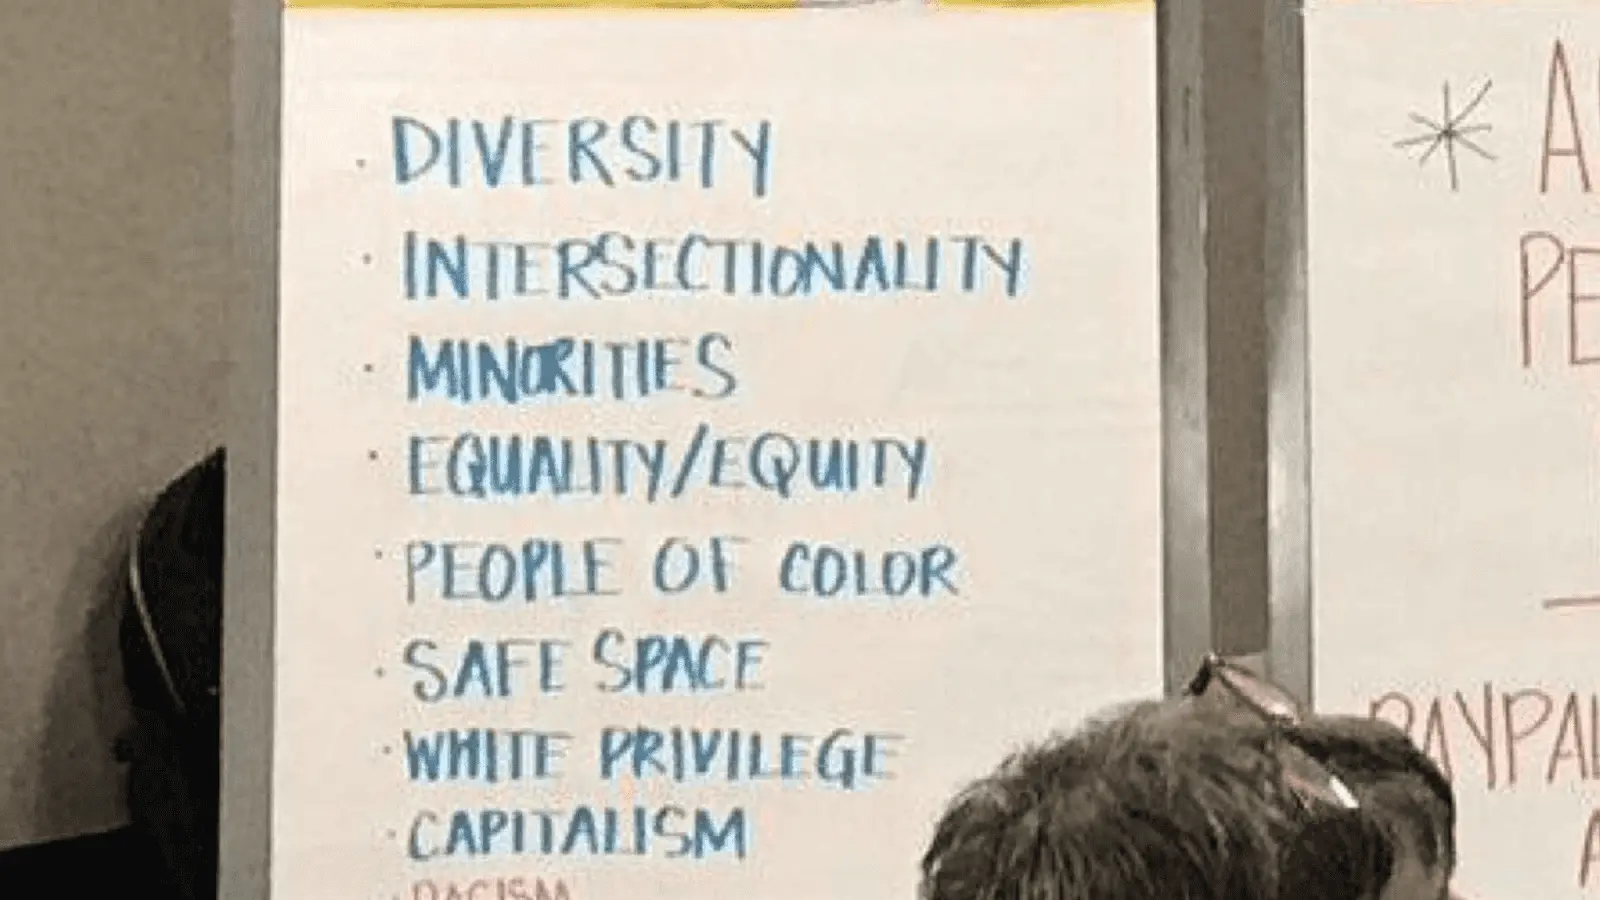 · DIVERSITY
· INTERSECTIONALITY
· MINORITIES
· EQUALITY/EQUITY
· PEOPLE OF COLOR
· SAFE SPACE
· WHITE PRIVILEGE
· CAPITALISM
· RACISM
* A
PE
PAYPAL
A